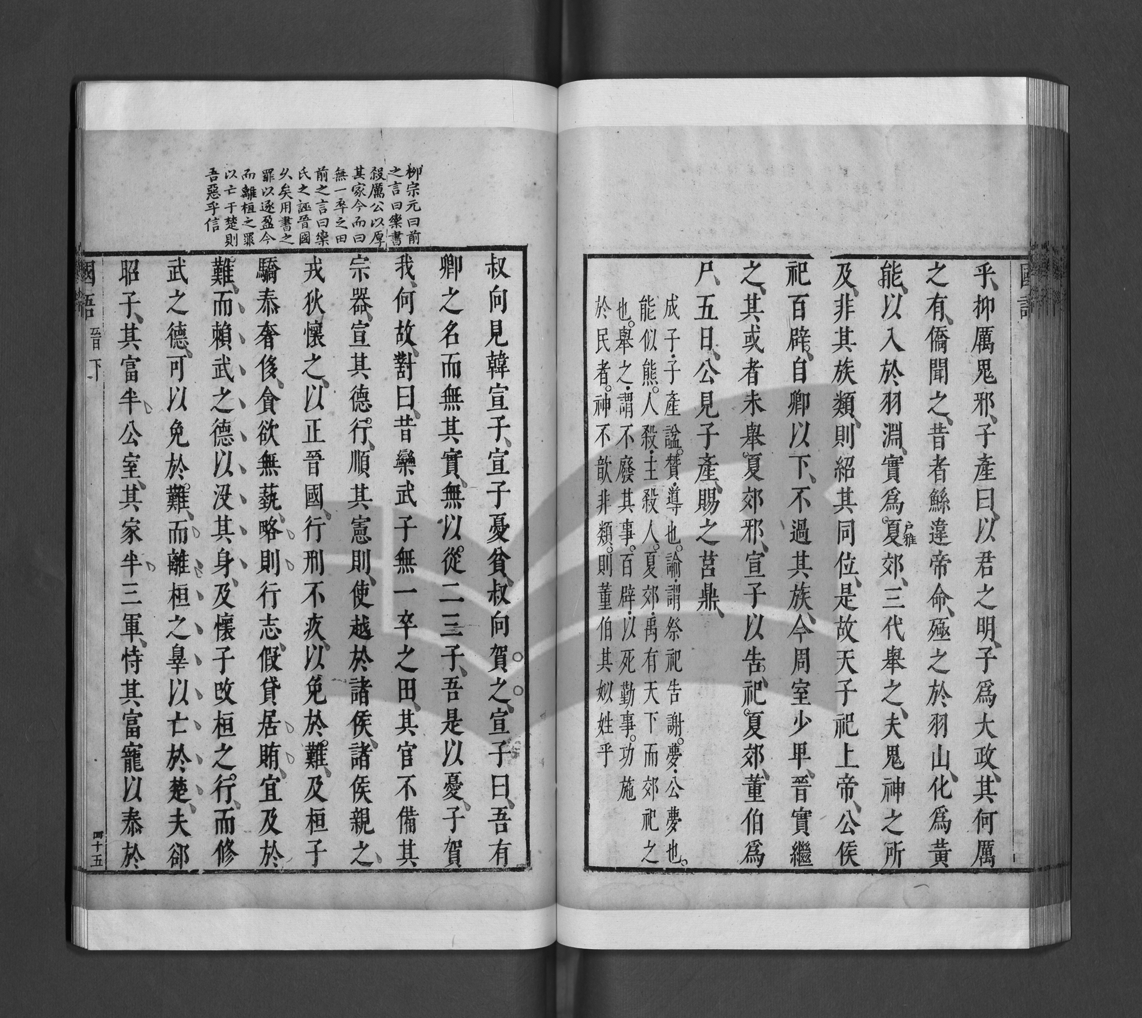 國語
乎抑厲鬼邪子產曰以君之明子爲大政其何厲
之有僑聞之昔者鯀違帝命殛之於羽山化爲黃
能以入於羽淵實爲夏郊三代舉之夫鬼神之所
及非其族類則紹其同位是故天子祀上帝公侯
祀百辟自卿以下不過其族今周室少卑晉實繼
之其或者未舉夏郊邪宣子以告祀夏郊董伯爲
尸五日公見子產賜之莒鼎
成子子產諡贊導也論謂祭祀告謝夢公夢也
能似熊人殺主殺人夏郊禹有天下而郊祀之
也舉之謂不廢其事百辟以死勤事功施
於民者神不歆非類則董伯其姒姓乎
柳宗元曰前
之言曰欒書
殺厲公以厚
其家今而曰
無一卒之田
前之言曰欒
氏之誣晉國
乆矣用書之
罪以逐盈今
而離桓之罪
以亡于楚則
吾惡乎信
叔向見韓宣子宣子憂貧叔向賀之宣子曰吾有
卿之名而無其實無以從二三子吾是以憂子賀
我何故對曰昔欒武子無一卒之田其官不備其
宗器宣其德行順其憲則使越於諸侯諸侯親之
戎狄懷之以正晉國行刑不疚以免於難及桓子
驕泰奢侈貪欲無蓺略則行志假貸居賄宜及於
難而賴武之德以沒其身及懷子改桓之行而修
武之德可以免於難而離桓之辠以亡於楚夫郤
昭子其富半公室其家半三軍恃其富寵以泰於
國語 晉下 四十五